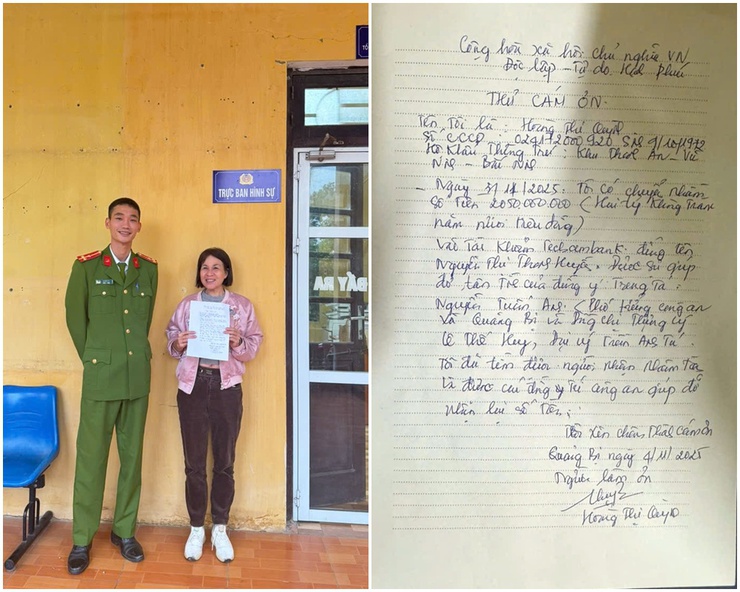 TRỰC BAN HÌNH SỰ
ĐẨY RA
Cộng hòa xã hội chủ nghĩa VN
Độc lập - Tự do. Hạnh phúc
THƯ CÁM ƠN.
Tên Tôi là: Hoàng Thị Quỳnh
Số CCCD: SN 9/10/1972
Hộ Khẩu Thường Trú: Khu
- Ngày 3/11/2025. Tôi có chuyển nhầm
Số Tiền 2050.000.000 (Hai tỷ không Trăm
năm mươi triệu đồng)
Vào Tài Khoản Techcombank. đứng tên
Nguyễn Thị Thanh Huyền. Được sự giúp
đỡ tận tình của đồng ý Trung Tá:
Nguyễn Tuấn Anh (Phó trưởng công an
xã Quảng Bị và Đồng chí Thượng úy
Lê Thế Huy, Đại úy Trần Anh Tú.
Tôi đã tìm được người nhận nhầm
và được các đồng chí công an giúp đỡ
nhận lại số Tiền.
Tôi xin chân Thành Cám ơn
Quảng Bị ngày 4/11/2025
Người làm ơn
Hoàng Thị Quỳnh